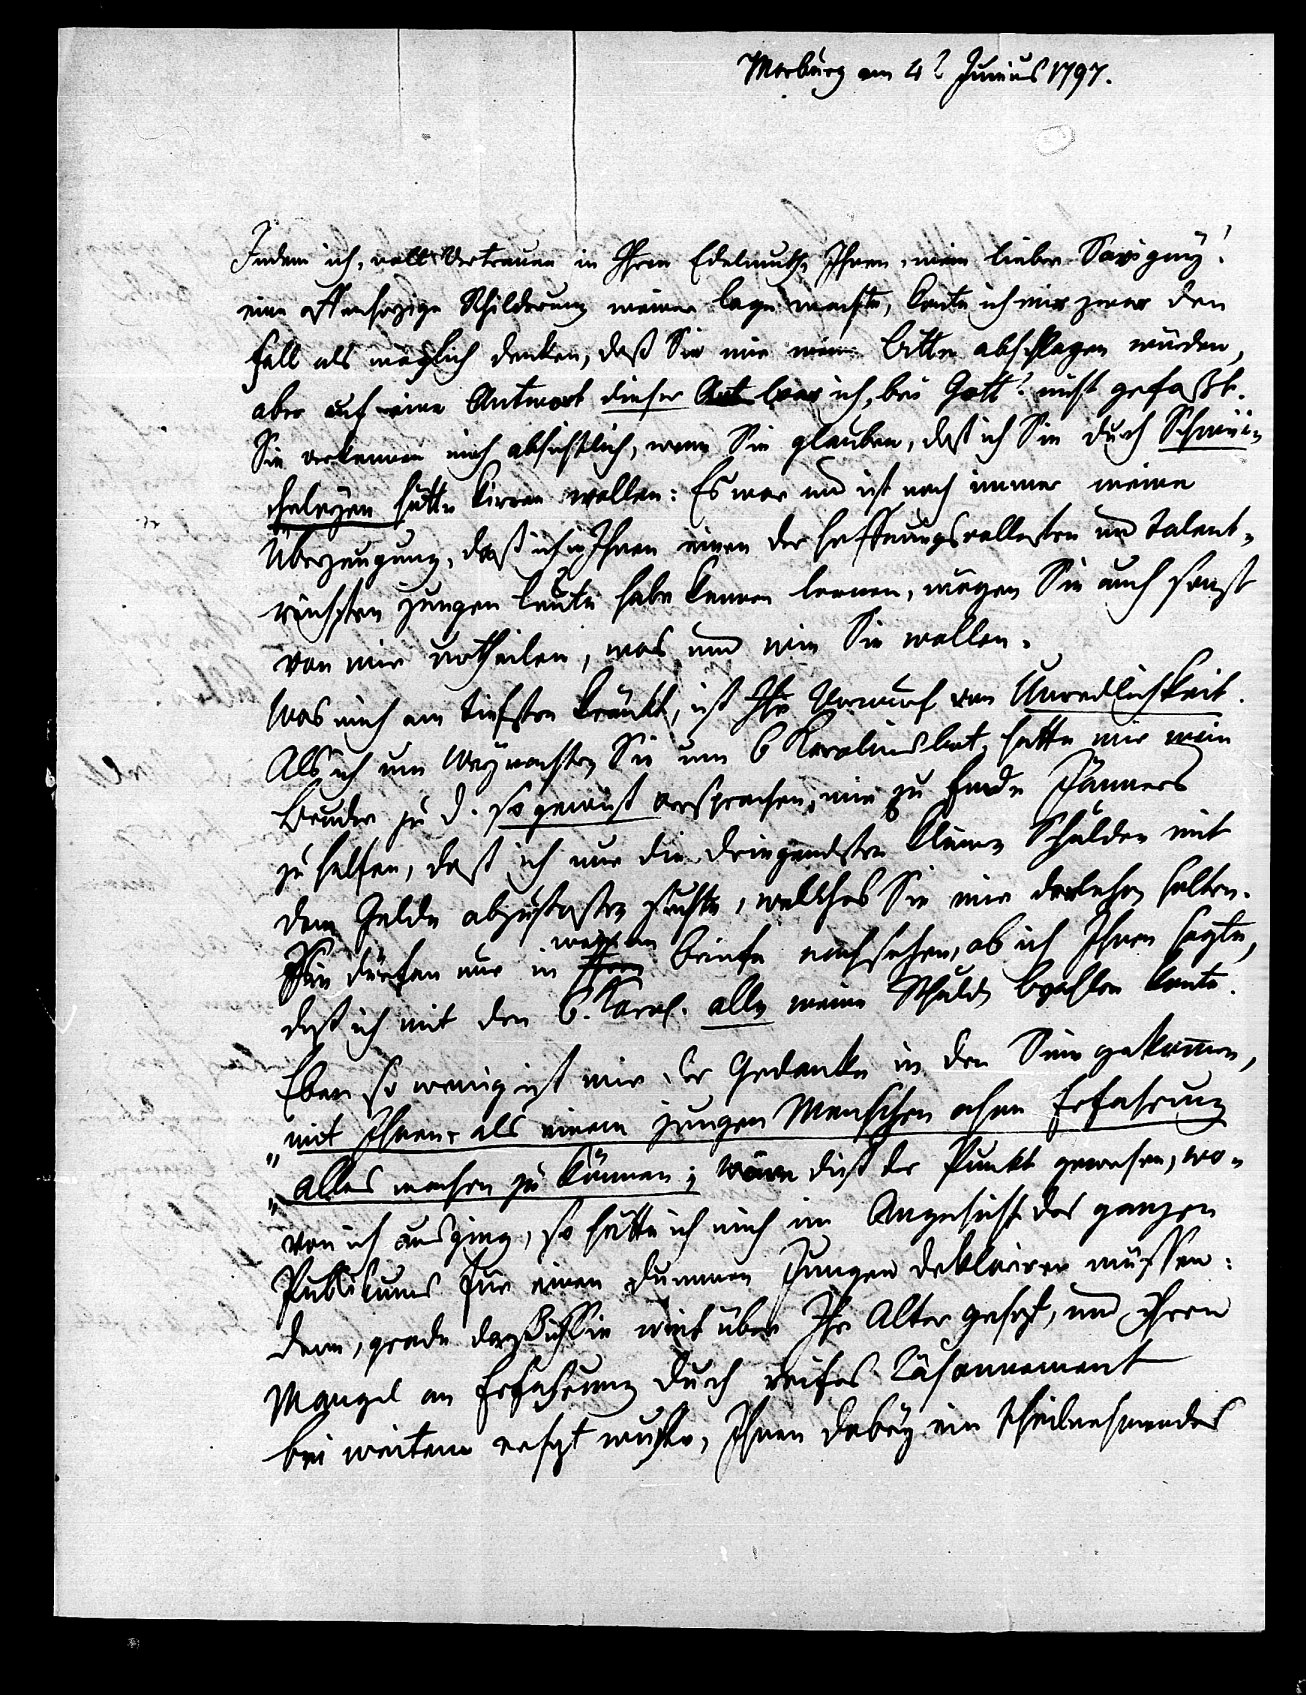 Marburg am 4t Junius 1797.
Indem ich, voll Vertrauen in Ihren Edelmuth, Ihnen, mein lieber Savigny!
eine offenherzige Schilderung meiner Lage machte, konte ich mir zwar den
Fall als möglich denken, daß Sie mir meine Bitte abschlagen würden,
aber auf eine Antwort dieser Art war ich, bei Gott! nicht gefaßt.
Sie verkennen mich absichtlich, wenn Sie glauben, daß ich Sie durch Schmei-
cheleyen hätte kirren wollen: Es war und ist noch immer meine
Überzeugung, daß ich in Ihnen einen der hoffnungsvollesten und talent-
reichsten jungen Leute habe kennen lernen, mögen Sie auch sonst
von mir urtheilen, was und wie Sie wollen.
Was mich am tiefsten kränkt, ist Ihr Vorwurf von Unredlichkeit.
Als ich um Weynachten Sie um 6 Karolins bat, hatte mir mein
Bruder zu D. so gewiß versprochen, mir zu Ende Jänners
zu helfen, daß ich nur die dringendsten kleinen Schulden mit
dem Gelde abzustoßen suchte, welches Sie mir darleihen solten.
Sie dürfen nur in meinem Briefe nachsehen, ob ich Ihnen sagte,
daß ich mit den 6. Karol. alle meine Schulden bezahlen konte.
Eben so wenig ist mir der Gedanke in den Sinn gekommen,
„mit Ihnen, als einem jungen Menschen ohne Erfahrung
„alles machen zu können; wäre dieß der Punkt gewesen, wo-
von ich ausging, so hätte ich mich im Angesicht des ganzen
Publikums für einen dummen Jungen deklariren müssen:
denn, grade daß ich Sie weit über Ihr Alter gesezt, und Ihren
Mangel an Erfahrung durch reifes Räsonnement
bei weitem ersezt wußte, Ihnen dabey ein theilnehmendes